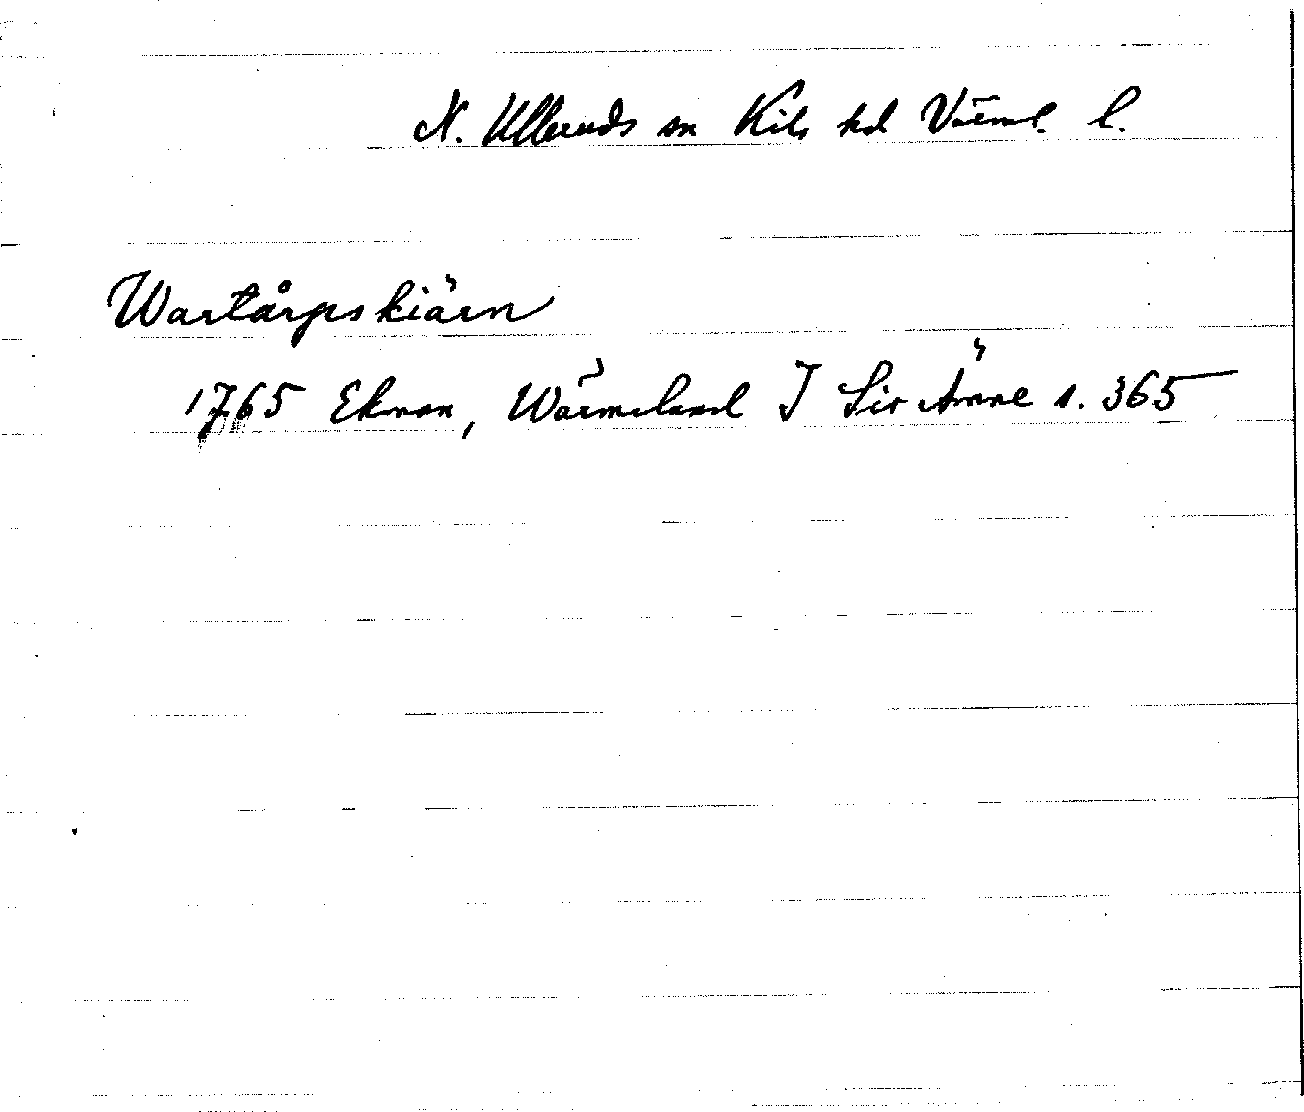 N. Ulleruds sn Kils hd Värml. l.
Wartårpskiärn
1765 Ekman, Wärmeland I Siö Ämne s. 365